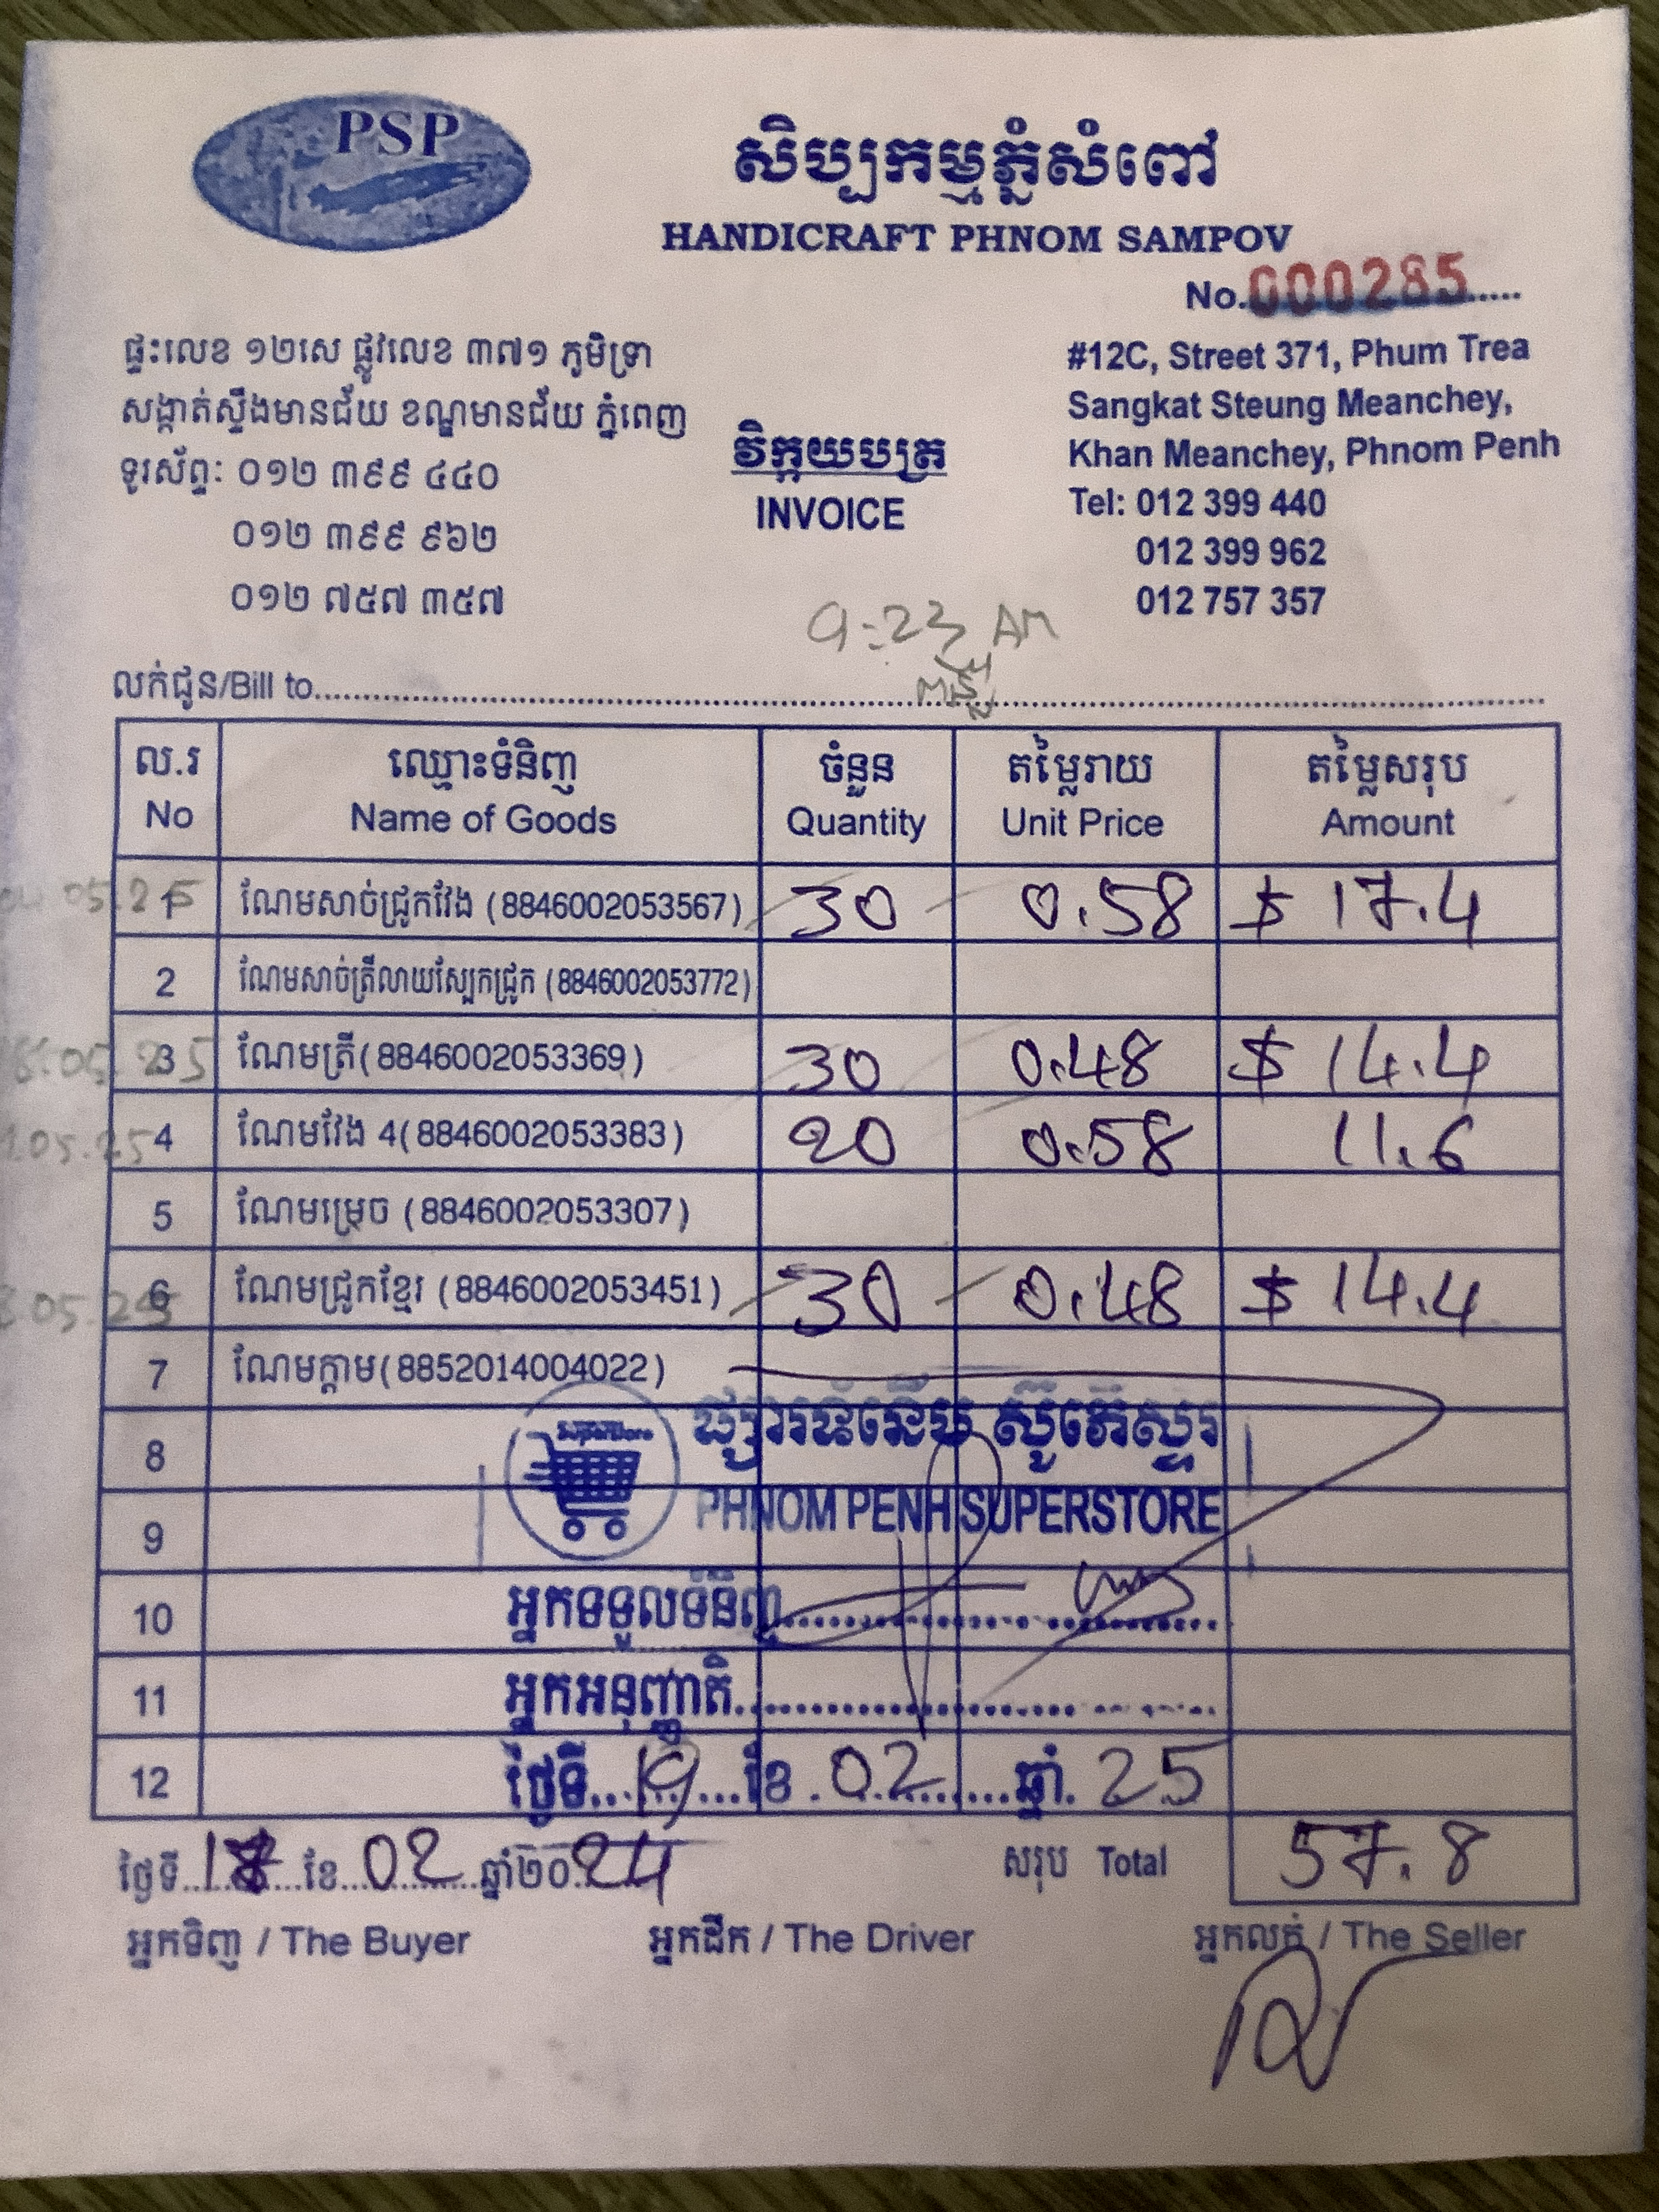 PSP
សិប្បកម្មភ្នំសំពៅ
HANDICRAFT PHNOM SAMPOV
No.000285
ផ្ទះលេខ ១២សេ ផ្លូវលេខ ៣៧១ ភូមិទ្រា
សង្កាត់ស្ទឹងមានជ័យ ខណ្ឌមានជ័យ ភ្នំពេញ
ទូរស័ព្ទៈ ០១២ ៣៩៩ ៤៤០
០១២ ៣៩៩ ៩៦២
០១២ ៧៥៧ ៣៥៧
វិក្កយបត្រ
INVOICE
#12C, Street 371, Phum Trea
Sangkat Steung Meanchey,
Khan Meanchey, Phnom Penh
Tel: 012 399 440
012 399 962
012 757 357
9:23 AM
លក់ជូន/Bill to
ល.រ ឈ្មោះទំនិញ ចំនួន តម្លៃរាយ តម្លៃសរុប
No Name of Goods Quantity Unit Price Amount
1 ណែមសាច់ជ្រូកវែង (8846002053567) 30 0.58 $ 17.4
2 ណែមសាច់ត្រីលាយស្បែកជ្រូក (8846002053772)
3 ណែមត្រី(8846002053369) 30 0.48 $ 14.4
4 ណែមវែង 4(8846002053383) 20 0.58 11.6
5 ណែមម្រេច (8846002053307)
6 ណែមជ្រូកខ្មែរ (8846002053451) 30 0.48 $ 14.4
7 ណែមក្តាម(8852014004022)
8
9 PHNOM PENH SUPERSTORE
10 អ្នកទទួលទំនិញ
11 អ្នកអនុញ្ញាតិ
12 ថ្ងៃទី 19 ខែ 02 ឆ្នាំ 25
ថ្ងៃទី 18 ខែ 02 ឆ្នាំ២០24 សរុប Total 57.8
អ្នកទិញ / The Buyer អ្នកដឹក / The Driver អ្នកលក់ / The Seller